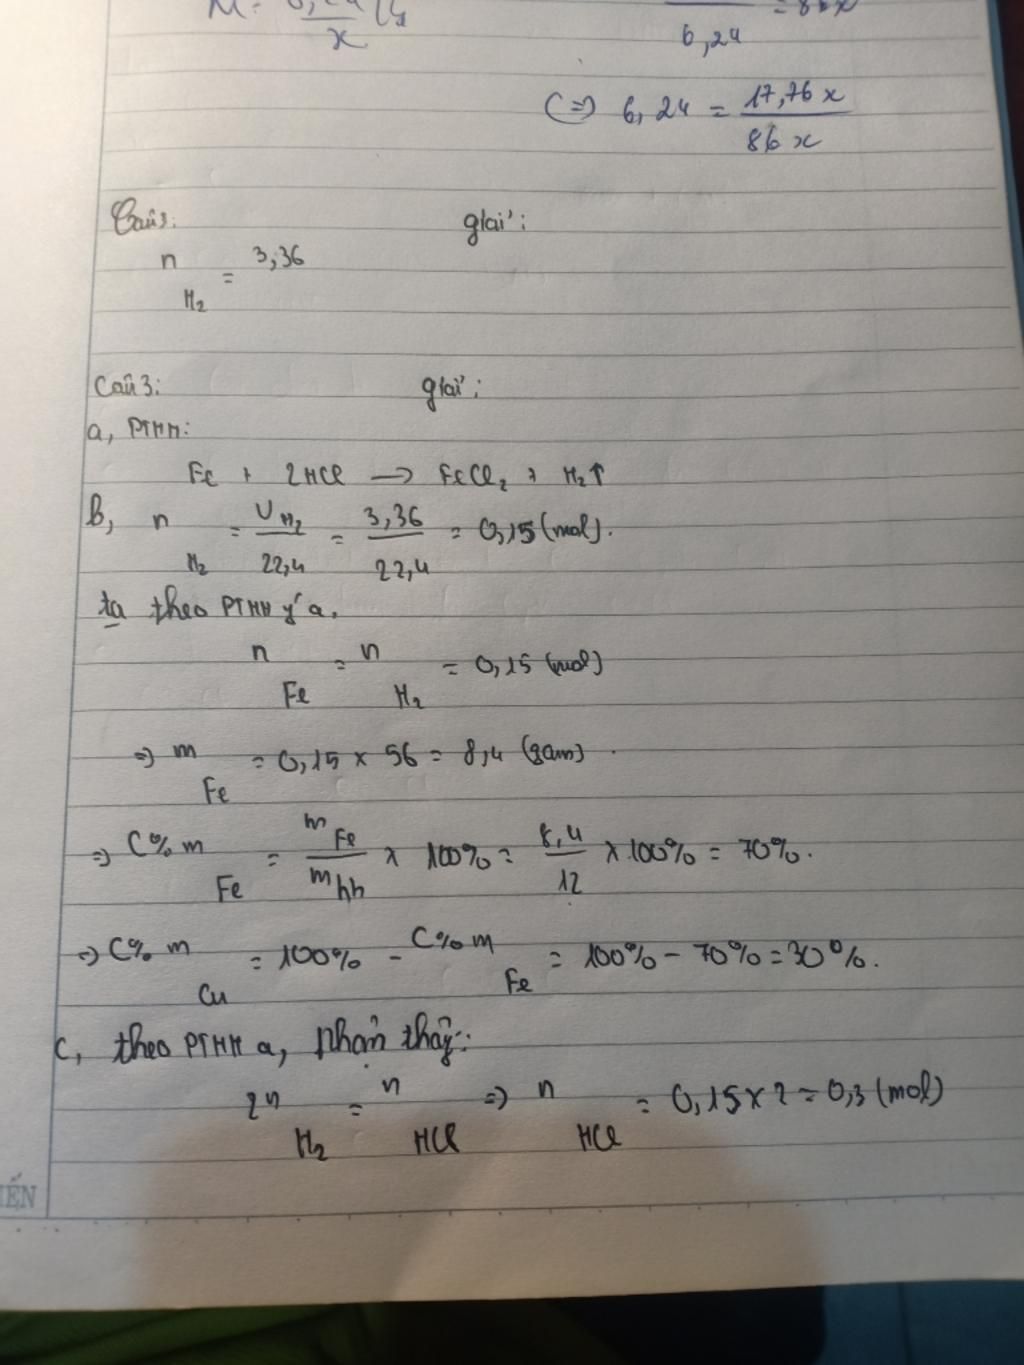 6,24
(=) 6,24 = 17,76 x / 86 x
Câu 3: giải:
n H₂ = 3,36
Câu 3: giải:
a, PTHH:
Fe + 2HCl → FeCl₂ + H₂↑
b, n H₂ = V H₂ / 22,4 = 3,36 / 22,4 = 0,15 (mol).
ta theo PTHH ý a.
n Fe = n H₂ = 0,15 (mol)
=> m Fe = 0,15 x 56 = 8,4 (gam).
=> C% m Fe = m Fe / m hh x 100% = 8,4 / 12 x 100% = 70%.
=> C% m Cu = 100% - C% m Fe = 100% - 70% = 30%.
c, theo PTHH a, nhận thấy:
2n H₂ = n HCl => n HCl = 0,15 x 2 = 0,3 (mol)
ẾN